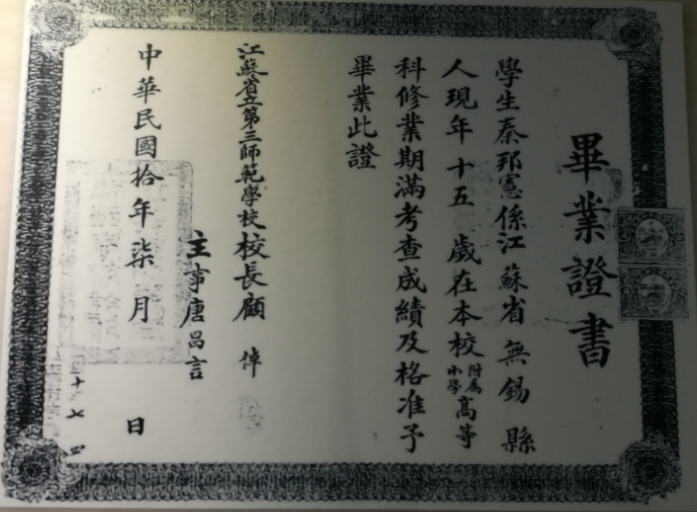 畢業證書
學生秦邦憲係江蘇省無錫縣
人現年十五歲在本校附属小學高等
科修業期滿考查成績及格准予
畢業此證
江蘇省立第三師範學校校長顧倬
主事唐昌言
中華民國拾年柒月 日
十七四